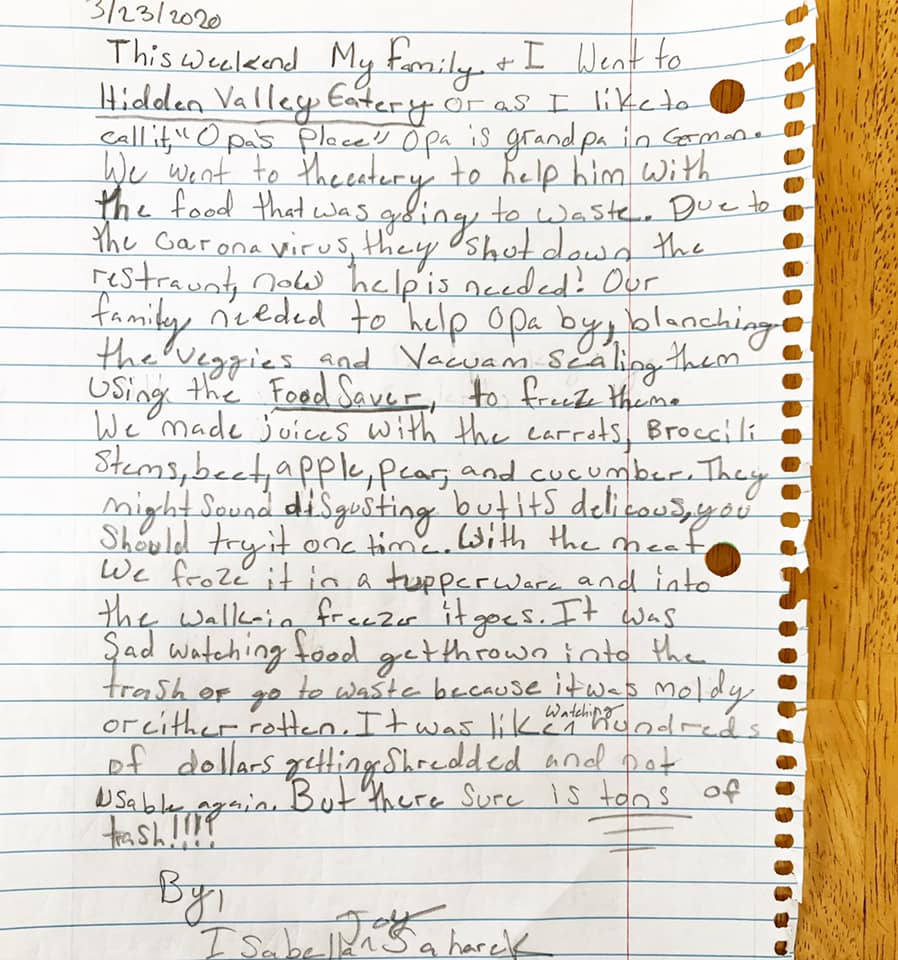 3/23/2020
This weekend My family + I Went to
Hidden Valley Eatery or as I like to
call it, "Opa's Place" Opa is grandpa in German.
We went to the eatery to help him with
the food that was going to waste. Due to
the Carona virus, they shut down the
restraunt, now help is needed! Our
family needed to help Opa by, blanching
the veggies and Vacuam sealing them
Using the Food Saver, to freeze them.
We made juices with the carrots, Broccili
Stems, beet, apple, pear, and cucumber. They
might sound disgusting but its delicous, you
Should try it one time. With the meat
We froze it in a tupperware and into
the walk-in freezer it goes. It was
Sad watching food get thrown into the
trash or go to waste because it was moldy
or either rotten. It was like watching hundreds
of dollars getting Shredded and not
Usable again. But there sure is tons of
trash!!!!
By,
Isabella Joy